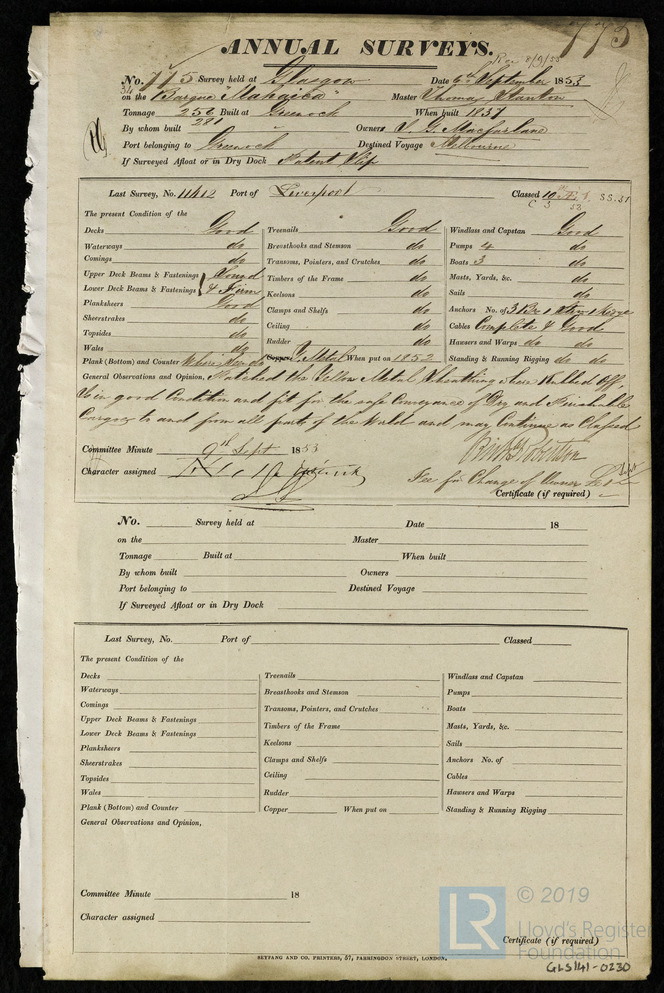 775
ANNUAL SURVEYS.
Rec 8/9/53
No. 775 Survey held at Glasgow Date 6th September 1853
on the Barque "Mahaica" Master Thomas Stanton
Tonnage 256 281 Built at Greenock When built 1837
By whom built Owners Macfarlane
Port belonging to Greenock Destined Voyage Melbourne
If Surveyed Afloat or in Dry Dock Patent Slip
Last Survey, No. 11412 Port of Liverpool Classed 10 Æ 1 SS.51
C 3 52
The present Condition of the
Decks Good Treenails Good Windlass and Capstan Good
Waterways do Breasthooks and Stemson do Pumps 4 do
Comings do Transoms, Pointers, and Crutches do Boats 3 do
Upper Deck Beams & Fastenings Sound Timbers of the Frame do Masts, Yards, &c. do
Lower Deck Beams & Fastenings & Firm Keelsons do Sails do
Planksheers Good Clamps and Shelfs do Anchors No. of 3 Br 1 Stm 1 Kedge
Sheerstrakes do Ceiling do Cables Complete & Good
Topsides do Rudder do Hawsers and Warps do do
Wales do Copper Y. Metal When put on 1852 Standing & Running Rigging do do
Plank (Bottom) and Counter Where seen do
General Observations and Opinion, Patched the Yellow Metal Sheathing where Rubbed off,
Is in good Condition and fit for the safe Conveyance of Dry and Perishable
Cargoes to and from all parts of the World and may Continue as Classed
Committee Minute 9th Sept 1853
Character assigned
Fee for Change of Owner
Certificate (if required)
No. Survey held at Date 18
on the Master
Tonnage Built at When built
By whom built Owners
Port belonging to Destined Voyage
If Surveyed Afloat or in Dry Dock
Last Survey, No. Port of Classed
The present Condition of the
Decks Treenails Windlass and Capstan
Waterways Breasthooks and Stemson Pumps
Comings Transoms, Pointers, and Crutches Boats
Upper Deck Beams & Fastenings Timbers of the Frame Masts, Yards, &c.
Lower Deck Beams & Fastenings Keelsons Sails
Planksheers Clamps and Shelfs Anchors No. of
Sheerstrakes Ceiling Cables
Topsides Rudder Hawsers and Warps
Wales Copper When put on Standing & Running Rigging
Plank (Bottom) and Counter
General Observations and Opinion,
Committee Minute 18
Character assigned
Certificate (if required)
SEYFANG AND CO. PRINTERS, 57, FARRINGDON STREET, LONDON.
LR © 2019
Lloyd's Register
Foundation
GLS141-0230